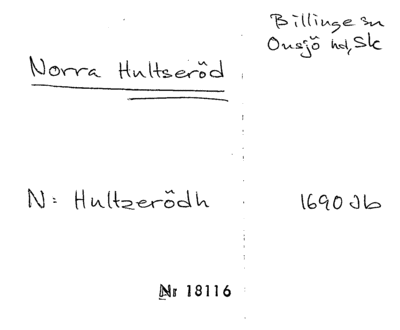 Billinge sn
Onsjö hd, Sk
Norra Hultseröd
N: Hultzerödh 1690 Jb
Nr 18116